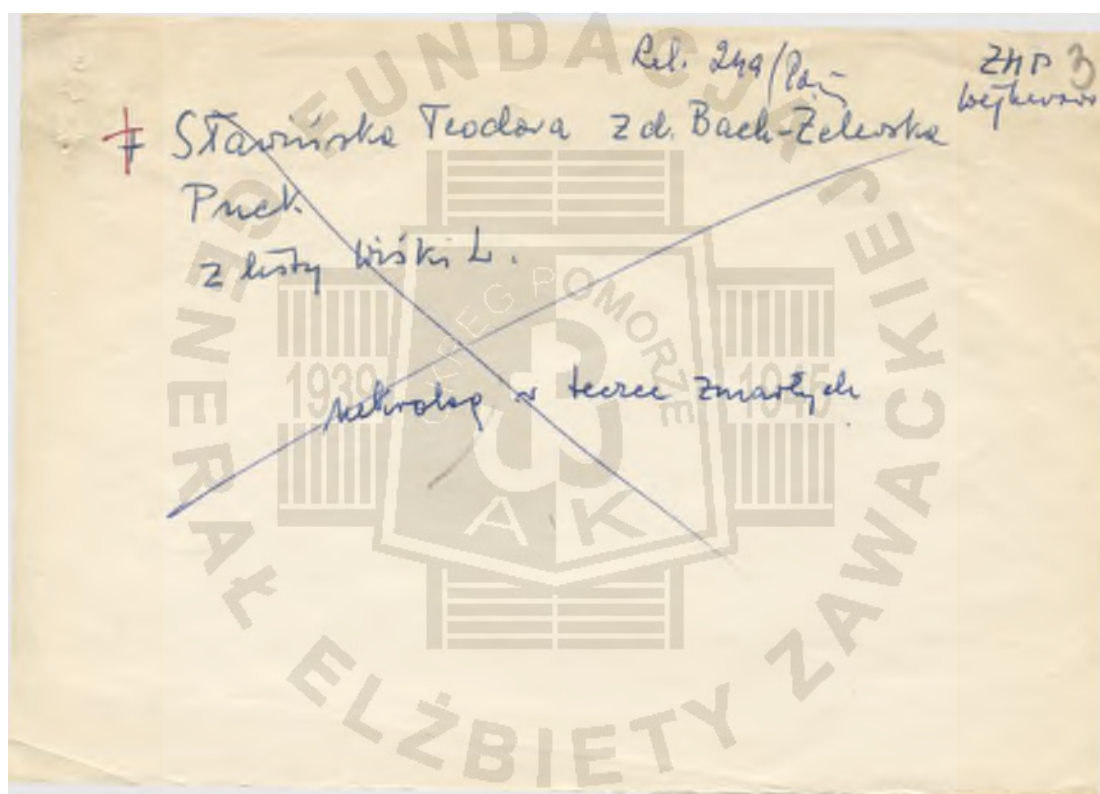 Rel. 249/Pom
ZHP 3
Wejherowo
‡ Sławińska Teodora z d. Bach-Żelewska
Puck
z listy Wiśki L.
nekrolog w teczce zmarłych
FUNDACJA GENERAŁ ELŻBIETY ZAWACKIEJ
OKRĘG POMORZE
1939 1945
AK